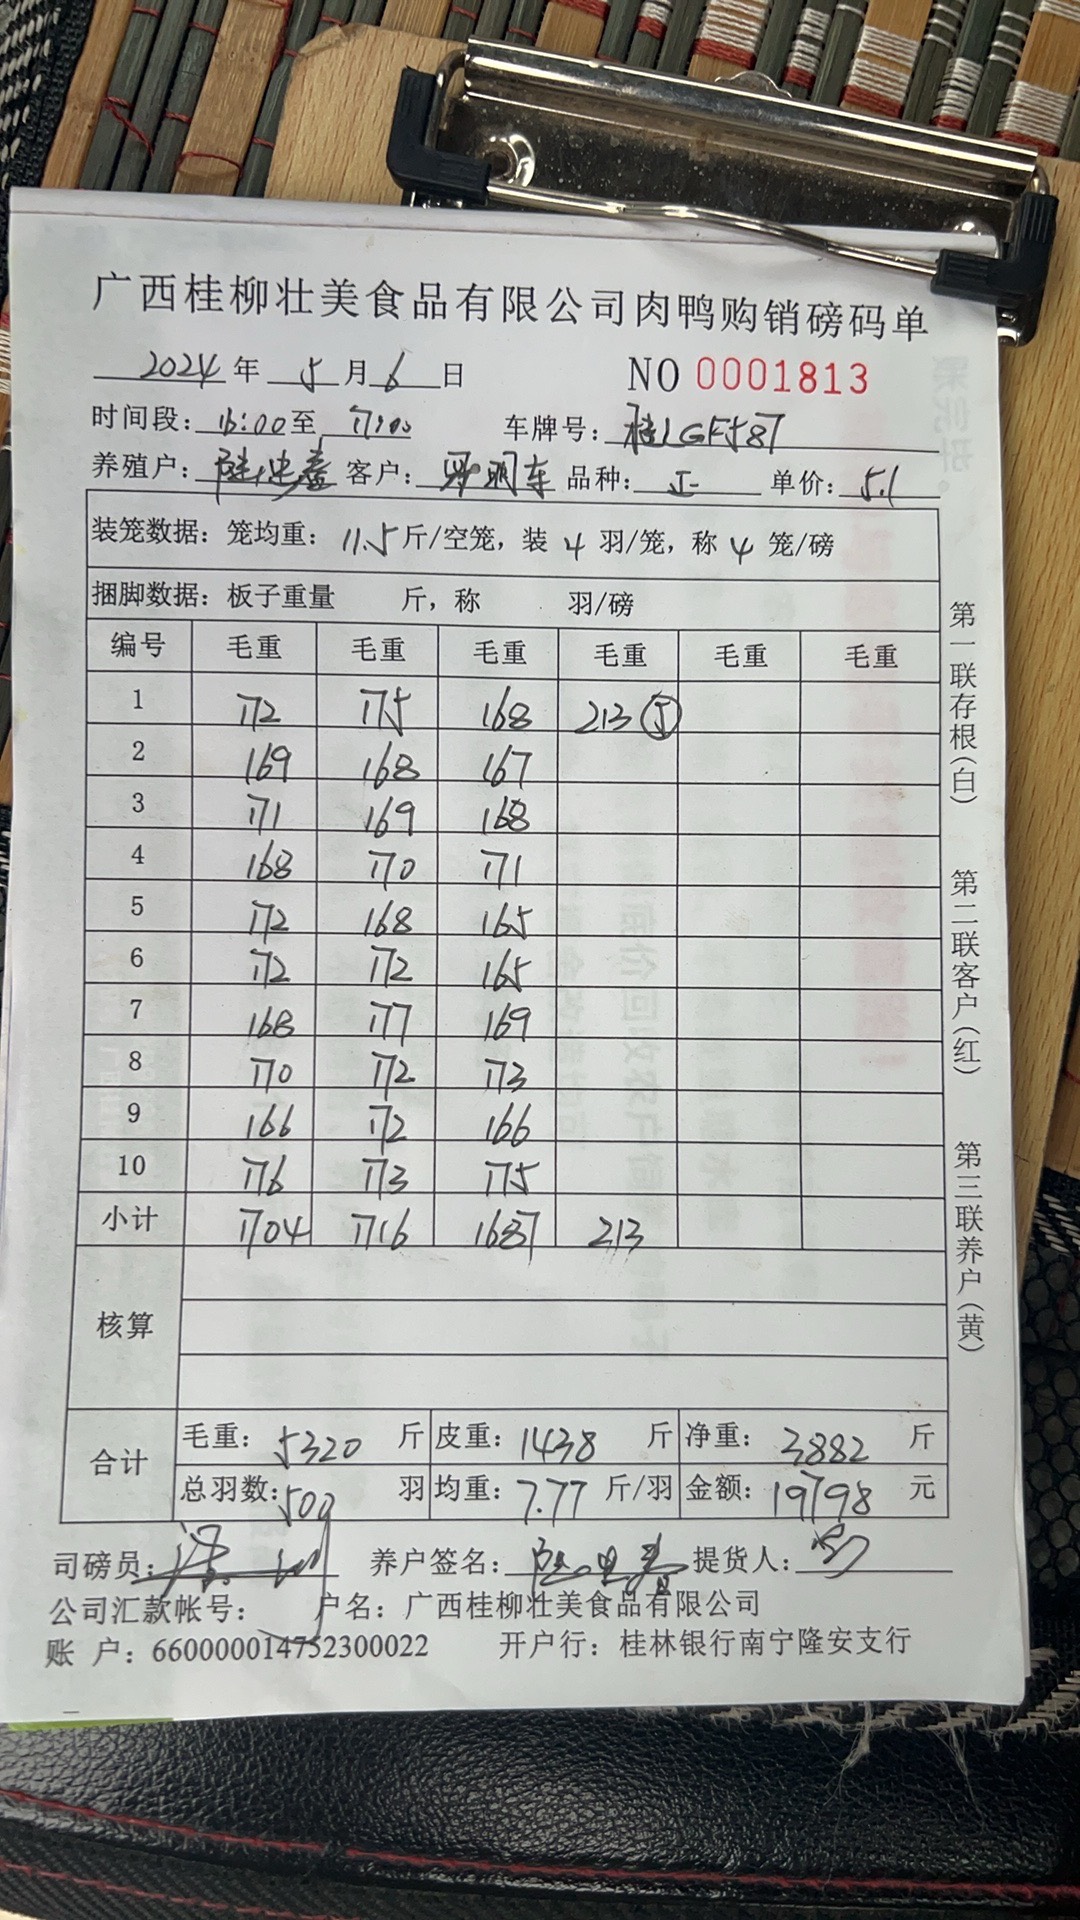 广西桂柳壮美食品有限公司肉鸭购销磅码单
2024年 5月6日 NO 0001813
时间段：16:00至 17:00 车牌号：桂LGF587
养殖户： 客户： 明车 品种：正 单价：5.1
装笼数据：笼均重：11.5斤/空笼，装 4 羽/笼，称 4 笼/磅
捆脚数据：板子重量 斤，称 羽/磅
编号 毛重 毛重 毛重 毛重 毛重 毛重
1 172 175 168 213 ⑤
2 169 168 167
3 171 169 168
4 168 170 171
5 172 168 165
6 172 172 165
7 168 177 169
8 170 172 173
9 166 172 166
10 176 173 175
小计 1704 1716 1687 213
核算
合计 毛重：5320 斤 皮重：1438 斤 净重：3882 斤
总羽数：500 羽 均重：7.77 斤/羽 金额：19798 元
司磅员： 养户签名： 提货人：
公司汇款帐号： 户名：广西桂柳壮美食品有限公司
账 户：660000014752300022 开户行：桂林银行南宁隆安支行
第一联存根(白)
第二联客户(红)
第三联养户(黄)